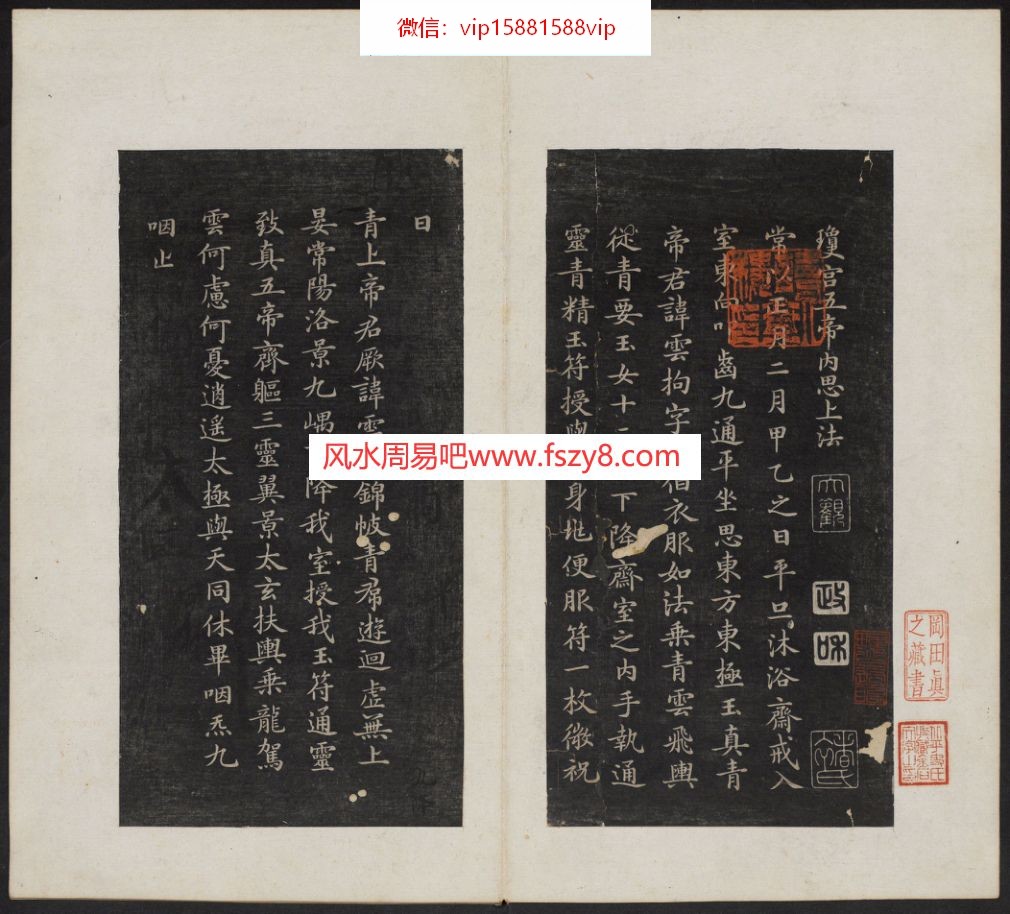 微信：vip15881588vip
瓊宫五帝内思上法
常以正月二月甲乙之日平旦沐浴齋戒入
室東向叩齒九通平坐思東方東極玉真青
帝君諱雲拘字 衣服如法乗青雲飛輿
從青要玉女十二 下降齋室之内手執通
靈青精玉符授與 身地便服符一枚微祝
曰
青上帝君厥諱雲 錦帔青帬遊迴虚無上
晏常陽洛景九嵎 降我室授我玉符通靈
致真五帝齊軀三靈翼景太玄扶輿乗龍駕
雲何慮何憂逍遥太極與天同休畢咽炁九
咽止
大觀
政和
岡田真
之藏書
风水周易吧www.fszy8.com